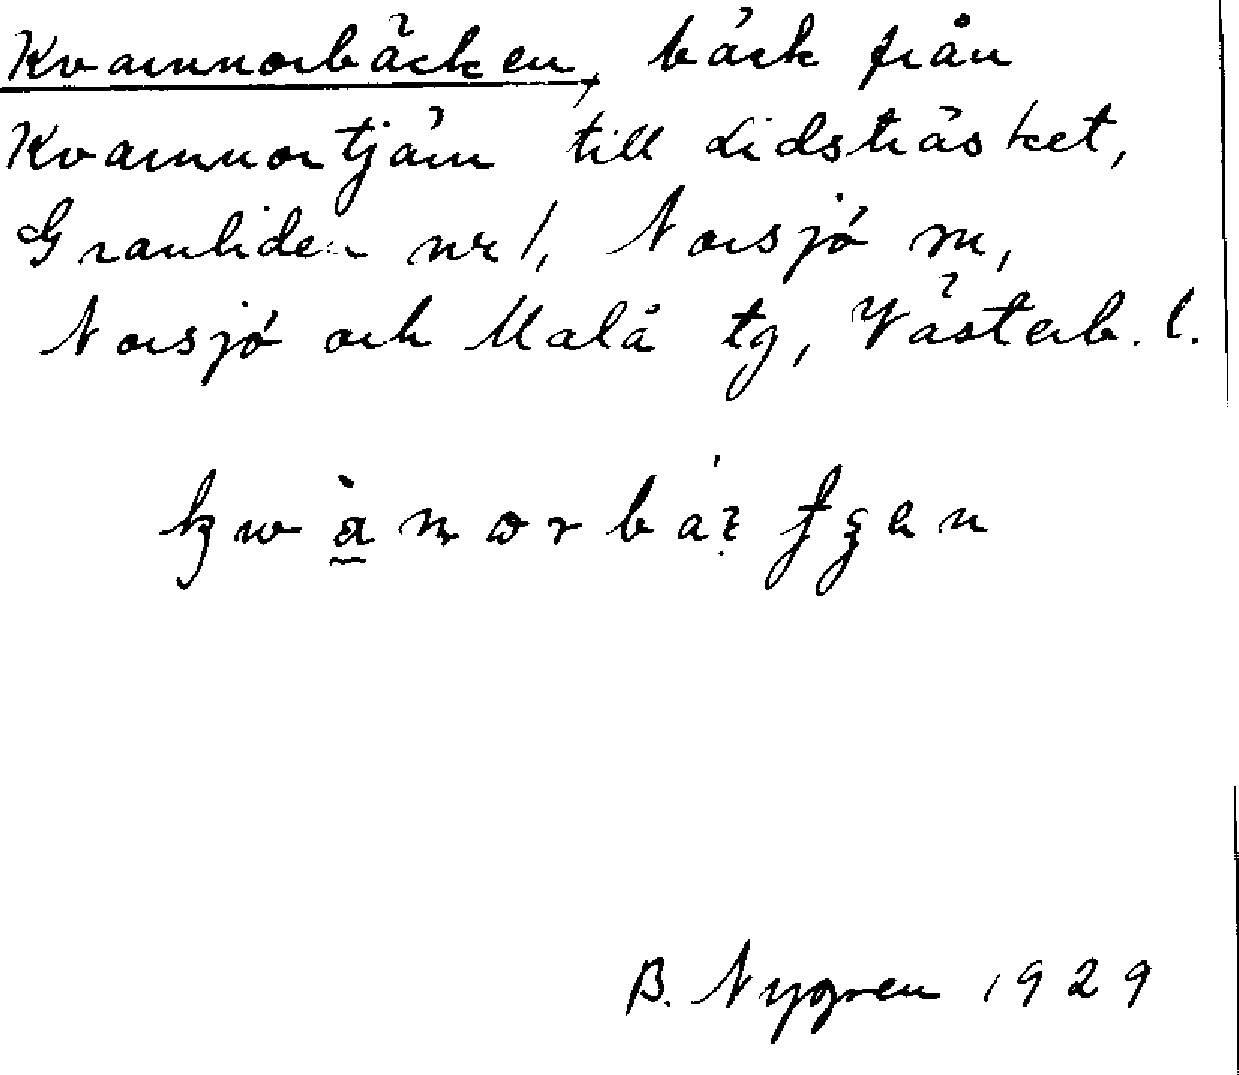 Kvarnnorbäcken, bäck från
Kvarnnortjärn till Lidsträsket,
Granliden nr 1, Norsjö sn,
Norsjö och Malå tg, Västerb. l.
B. Nygren 1929